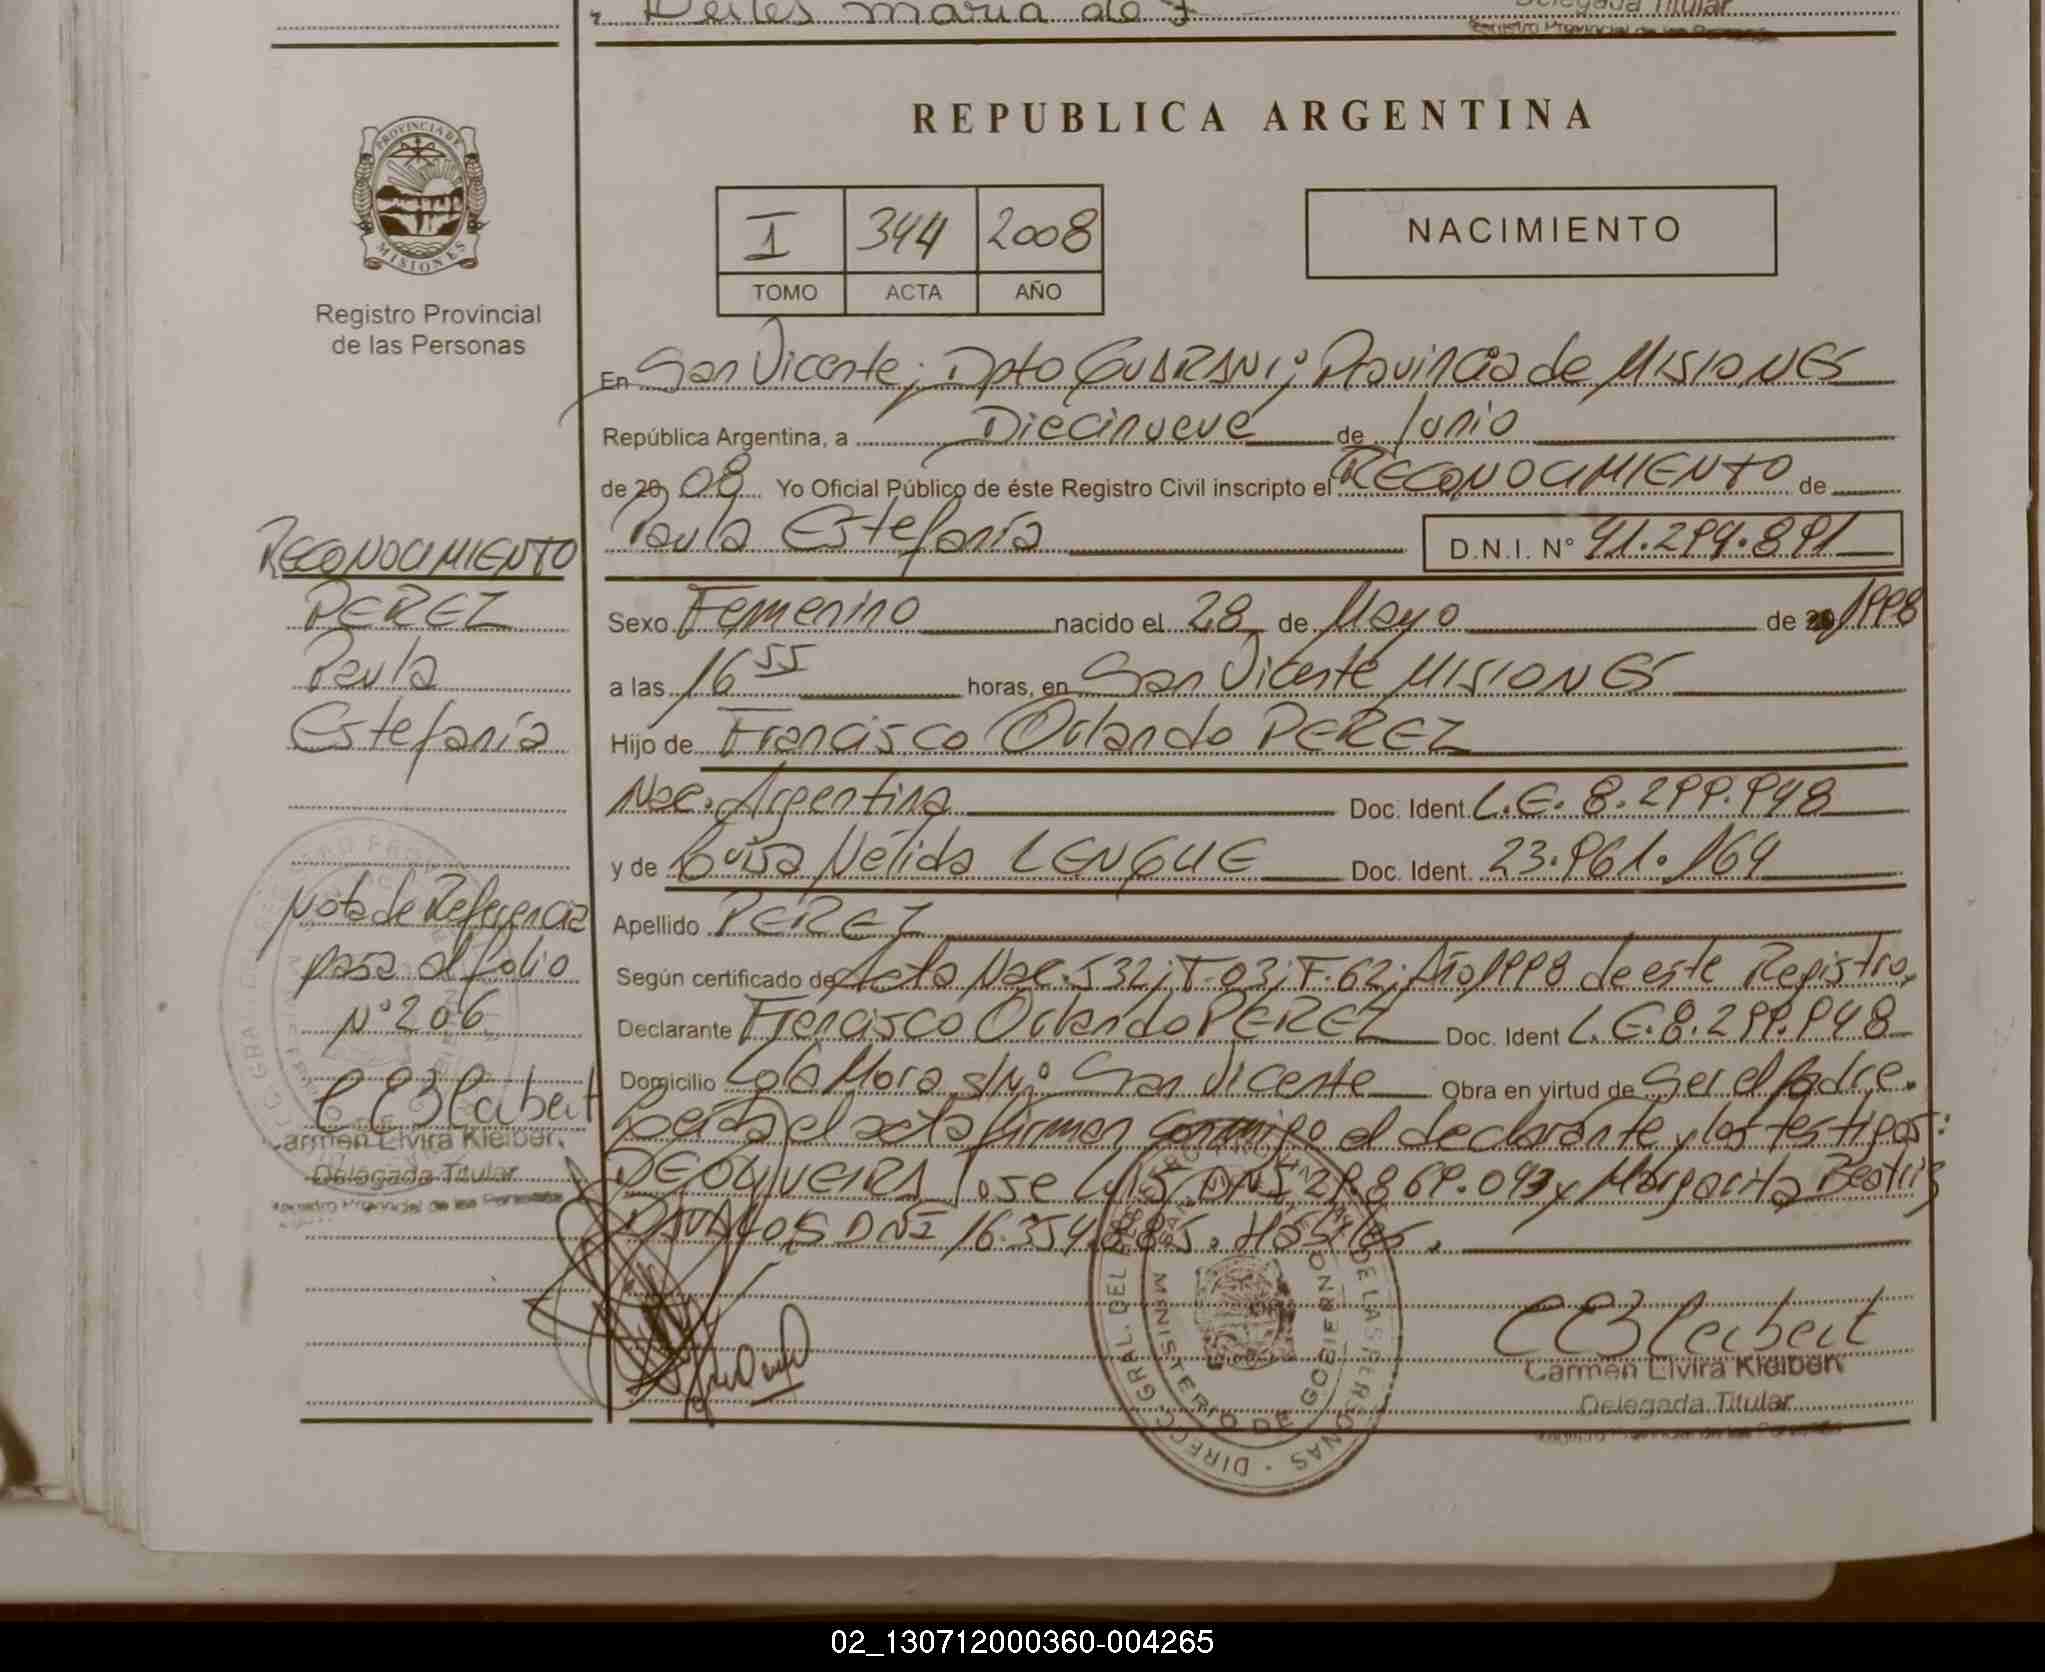 maria de
Delegada Titular
Registro Provincial de las Personas
PROVINCIA DE
MISIONES
Registro Provincial
de las Personas
REPUBLICA ARGENTINA
I 344 2008
TOMO ACTA AÑO
NACIMIENTO
En San Vicente; Dpto GUARANI; Provincia de MISIONES
República Argentina, a Diecinueve de Junio
de 20 08 Yo Oficial Público de éste Registro Civil inscripto el RECONOCIMIENTO de
Paula Estefanía D.N.I. N° 41.299.891
Sexo Femenino nacido el 28 de Mayo de 1998
a las 16 55 horas, en San Vicente MISIONES
Hijo de Francisco Orlando PEREZ
Nac. Argentina Doc. Ident. L.E. 8.299.948
y de Luisa Nélida LENGUE Doc. Ident. 23.961.164
Apellido PEREZ
Según certificado de Acta Nac. 532; T. 03; F. 62; Año 1998 de este Registro,
Declarante Francisco Orlando PEREZ Doc. Ident L.E. 8.299.948
Domicilio Lola Mora s/N° San Vicente Obra en virtud de Ser el padre.
Leída el acta firman conmigo el declarante y los testigos:
DEOLIVEIRA Jose Luis DNI 29.869.093 y Margarita Beatriz
DAVALOS DNI 16.354.885. Hábiles.
Carmen Elvira Kleiber
Delegada Titular
Registro Provincial de las Personas
RECONOCIMIENTO
PEREZ
Paula
Estefanía
Nota de Referencia
pasa al folio
N° 206
Carmen Elvira Kleiber
Delegada Titular
Registro Provincial de las Personas
DIRECC. GRAL. DEL REGISTRO PROVINCIAL DE LAS PERSONAS
MINISTERIO DE GOBIERNO
02_130712000360-004265